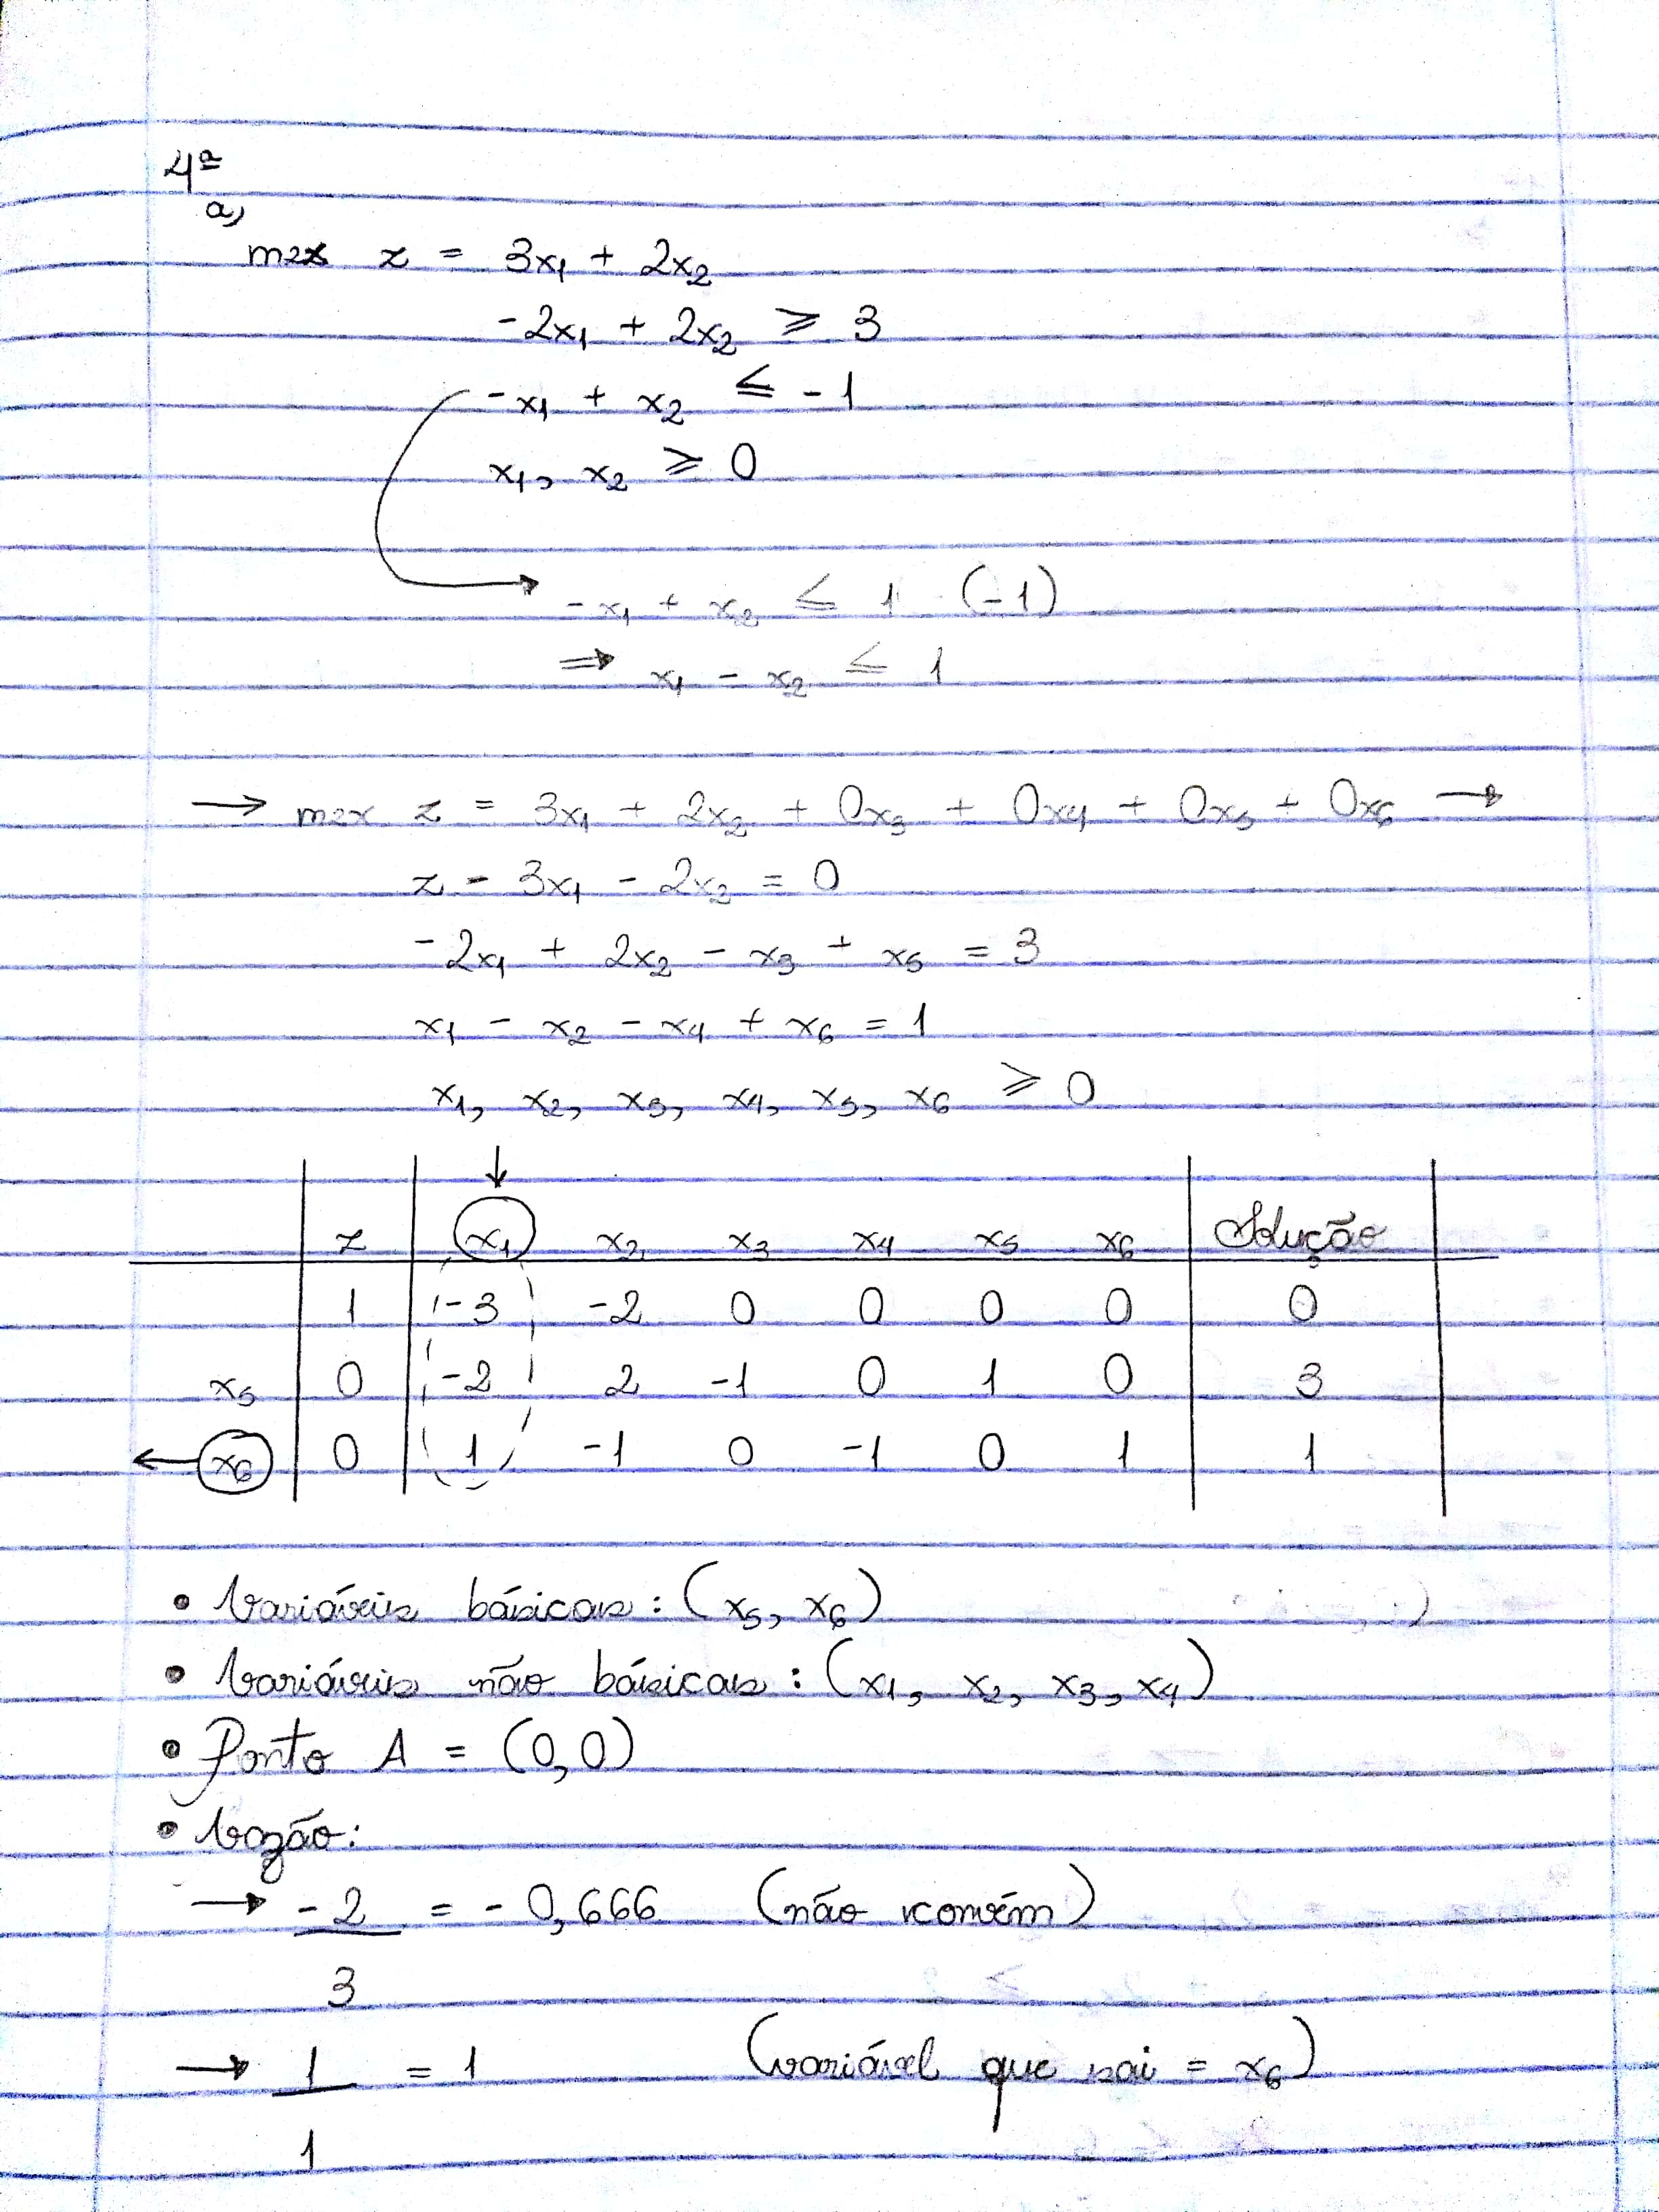 4ª
a)
max z = 3x₁ + 2x₂
-2x₁ + 2x₂ ≥ 3
-x₁ + x₂ ≤ -1
x₁, x₂ ≥ 0
-x₁ + x₂ ≤ 1 (-1)
⇒ x₁ - x₂ ≤ 1
→ max z = 3x₁ + 2x₂ + 0x₃ + 0x₄ + 0x₅ + 0x₆ →
z - 3x₁ - 2x₂ = 0
-2x₁ + 2x₂ - x₃ + x₅ = 3
x₁ - x₂ - x₄ + x₆ = 1
x₁, x₂, x₃, x₄, x₅, x₆ ≥ 0
z x₁ x₂ x₃ x₄ x₅ x₆ Solução
1 -3 -2 0 0 0 0 0
x₅ 0 -2 2 -1 0 1 0 3
x₆ 0 1 -1 0 -1 0 1 1
• Variáveis básicas: (x₅, x₆)
• Variáveis não básicas: (x₁, x₂, x₃, x₄)
• Ponto A = (0,0)
• Vazão:
→ -2/3 = -0,666 (não convém)
→ 1/1 = 1 (variável que sai = x₆)